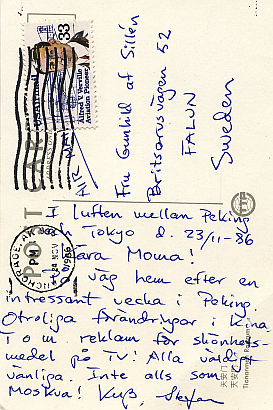 33
USAirmail
Alfred V. Verville
Aviation Pioneer
AIR MAIL
POST CARD
Fru Gunhild af Sillén
Britsarvsvägen 52
FALUN
Sweden
ANCHORAGE, AK
PM
24 NOV
1986
I luften mellan Peking
och Tokyo d. 23/11-86
Kära Moma!
På väg hem efter en
intressant vecka i Peking.
Otroliga förändringar i Kina
T o m reklam för skönhets-
medel på TV! Alla väldigt
vänliga. Inte alls som i
Moskva! Kuß, Stefan
天安门
Tiananmen Rostrum